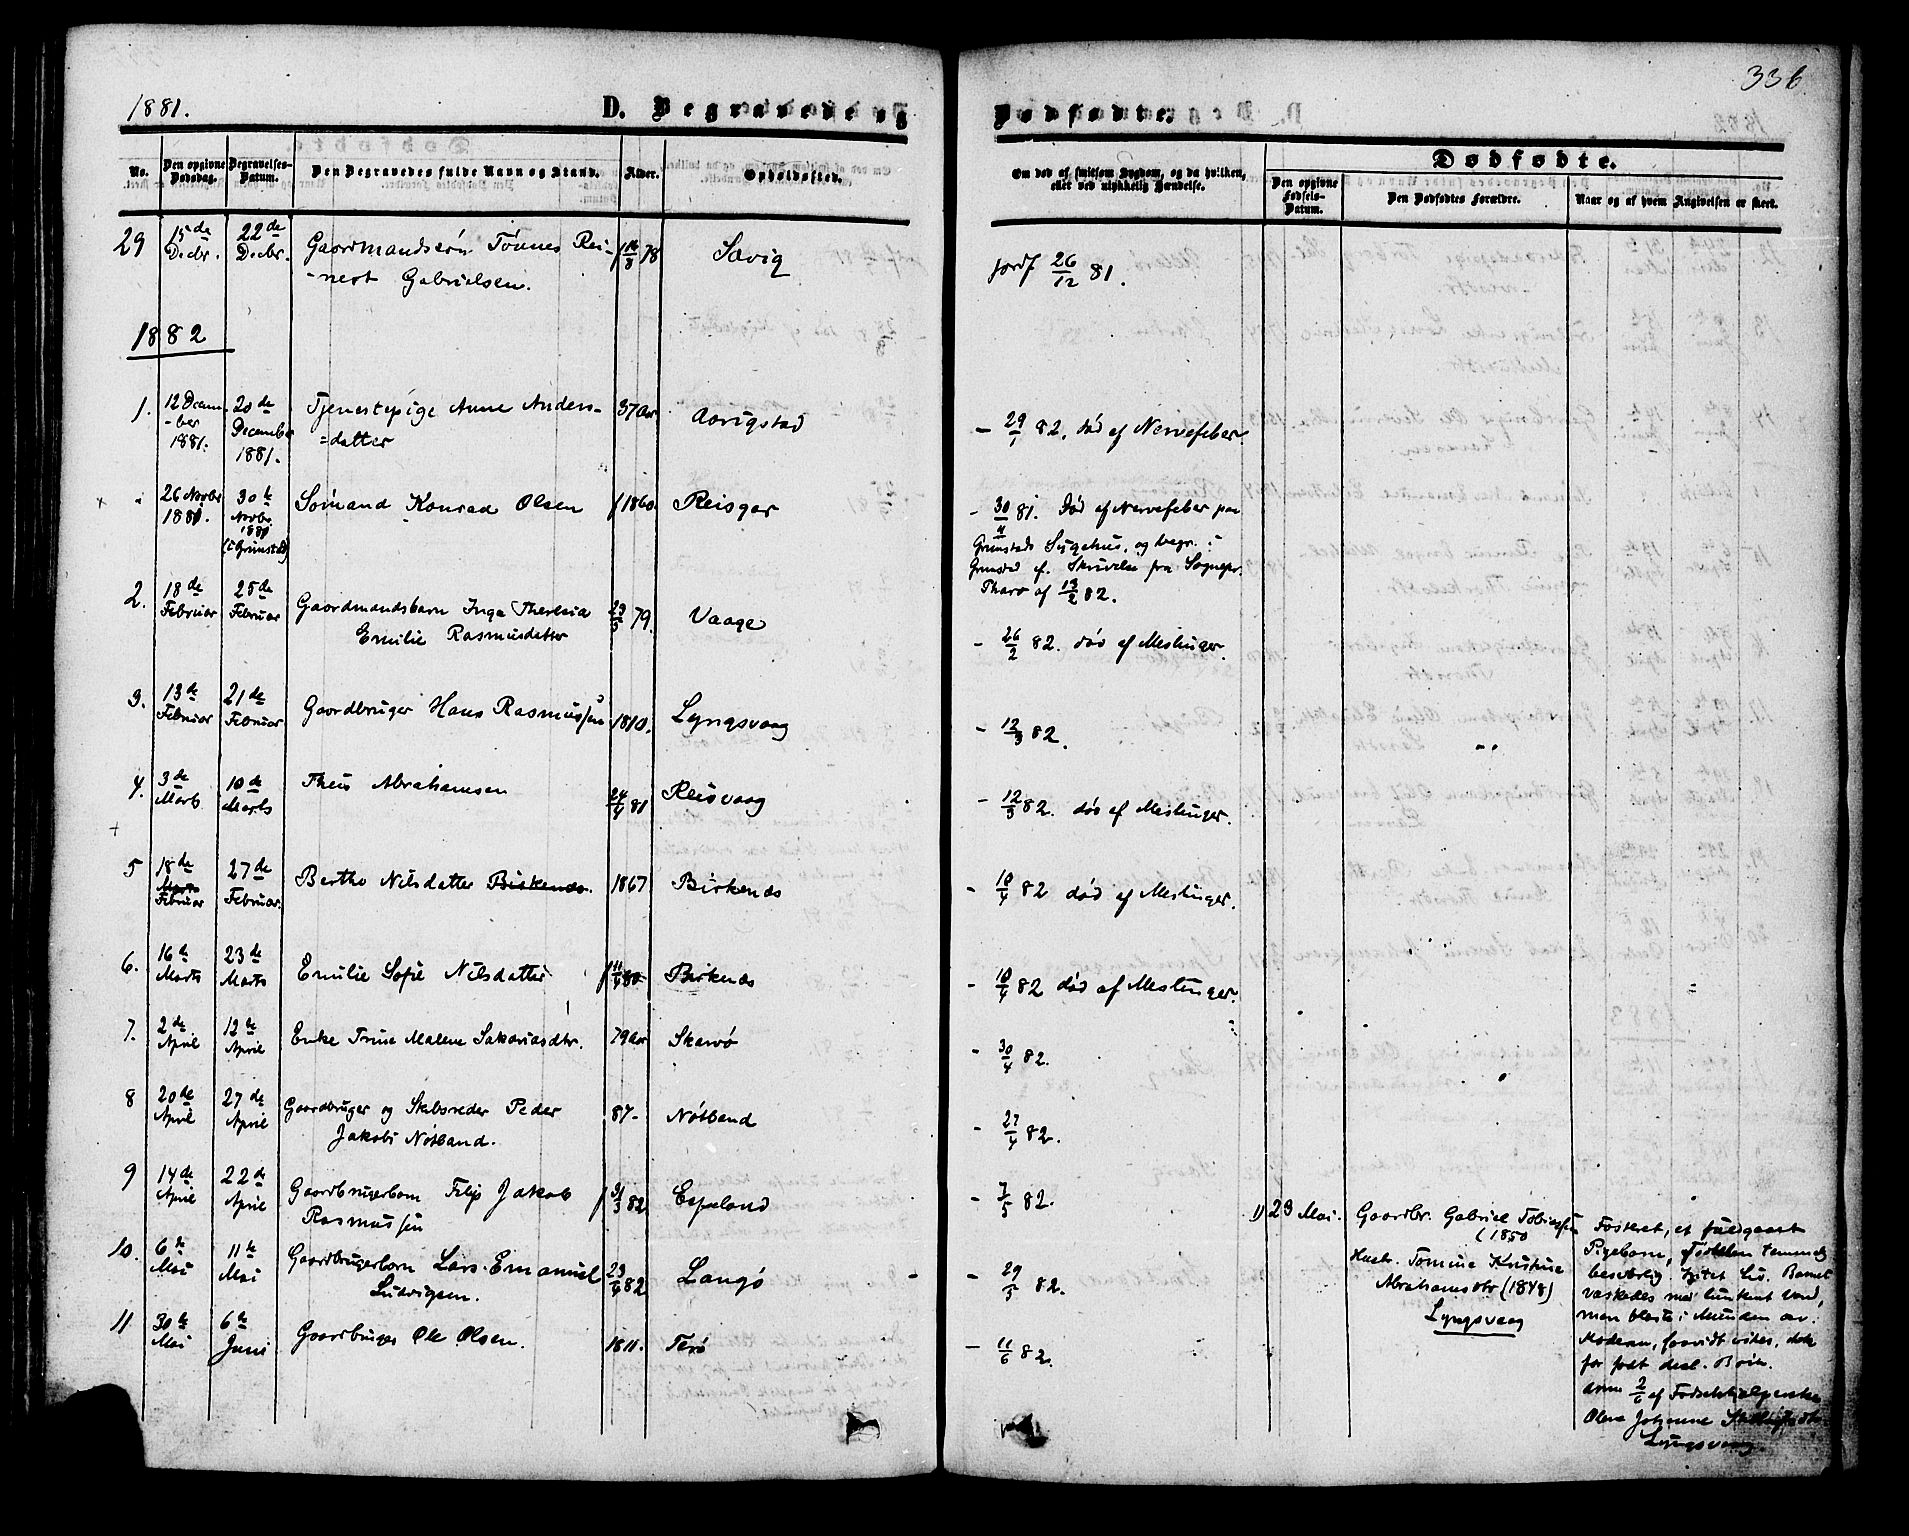 336
1881.
D. Begravede og
Dødfødte.
No.
Den opgivne Dødsdag.
Begravelses-Datum.
Den Begravedes fulde Navn og Stand.
Alder.
Opholdssted.
Om død af smitsom Sygdom, og da hvilken,
eller ved ulykkelig Hændelse.
Dødfødte.
Den opgivne Fødsels-Datum.
Den Dødfødtes Forældre.
Naar og af hvem Angivelsen er skeet.
29 15de Decbr. 22de Decbr. Gaardmandssøn Tønnes Rei-
-nert Gabrielsen. 78 Sævig
Jordf 26/12 81.
1882
1. 12 Decem-ber 1881. 20de December 1881. Tjenestepige Anne Anders-
=datter 37 Aar
- 29/1 82. død af Nervefeber
26 Novbr 30te Novbr (i Grimstad) Sømand Konrad Olsen f 1860. Reisgar
- 30/4 81. Død af Nervefeber paa
Grimstads Sygehus, og begr. i
Grimstad ef. Skrivelse fra Sognepr.
af 13/2 82.
2. 18de Februar 25de Februar Gaardmandsbarn Inga Theresia
Emilie Rasmusdatter 79. Vaage
- 26/2 82. død af Meslinger.
3. 13de Februar 21de Februar Gaardbruger Hans Rasmussen 1810. Lyngsvaag
- 12/3 82.
4. 3de Marts 10de Marts Theis Abrahamsen 24/4 81 Reisvaag
- 12/3 82. død af Meslinger.
5 18de Marts Februar 27de Februar. Berthe Nilsdatter Birkenes. 1867 Birkenes
- 10/4 82 død af Meslinger.
6. 16de Marts 23de Marts Emilie Sofie Nilsdatter 80 Birkenes
- 10/4 82 død af Meslinger.
7. 2de April 12te April Enke Trine Malene Sakariasdtr. 79 Aar Skarvø
- 30/4 82.
8 20de April 27de April Gaardbruger og Skibsreder Peder
Jakobs Nøtland. 87- Nøtland
- 27/4 82.
9 14de April 22de April Gaardbrugerbarn Filip Jakob
Rasmussen 82 Espeland
- 7/5 82.
10. 6te Mai 11te Mai Gaardbrugerbarn Lars Emanuel
Ludvigsen. 23/4 82 Langø
- 29/5 82.
11 30te Mai 6te Juni Gaardbruger Ole Olsen. 1811. Terø
- 11/6 82.
1) 29 Mai. Gaardbr. Gabriel Tobiassen
(1850
Hustr. Tomine Kristine
Abrahamsdtr (1848)
Lyngsvaag
Fosteret, et fuldbaaret
Pigebarn, Fødselen temmelig
besværlig. Intet Liv. Barnet
vaskedes med lunkent Vand,
man blæste i Munden
Moderen, saavidt vides,
for født
2/6 af Fødselshjælperske
Olene Johanne
Lyngsvaag.